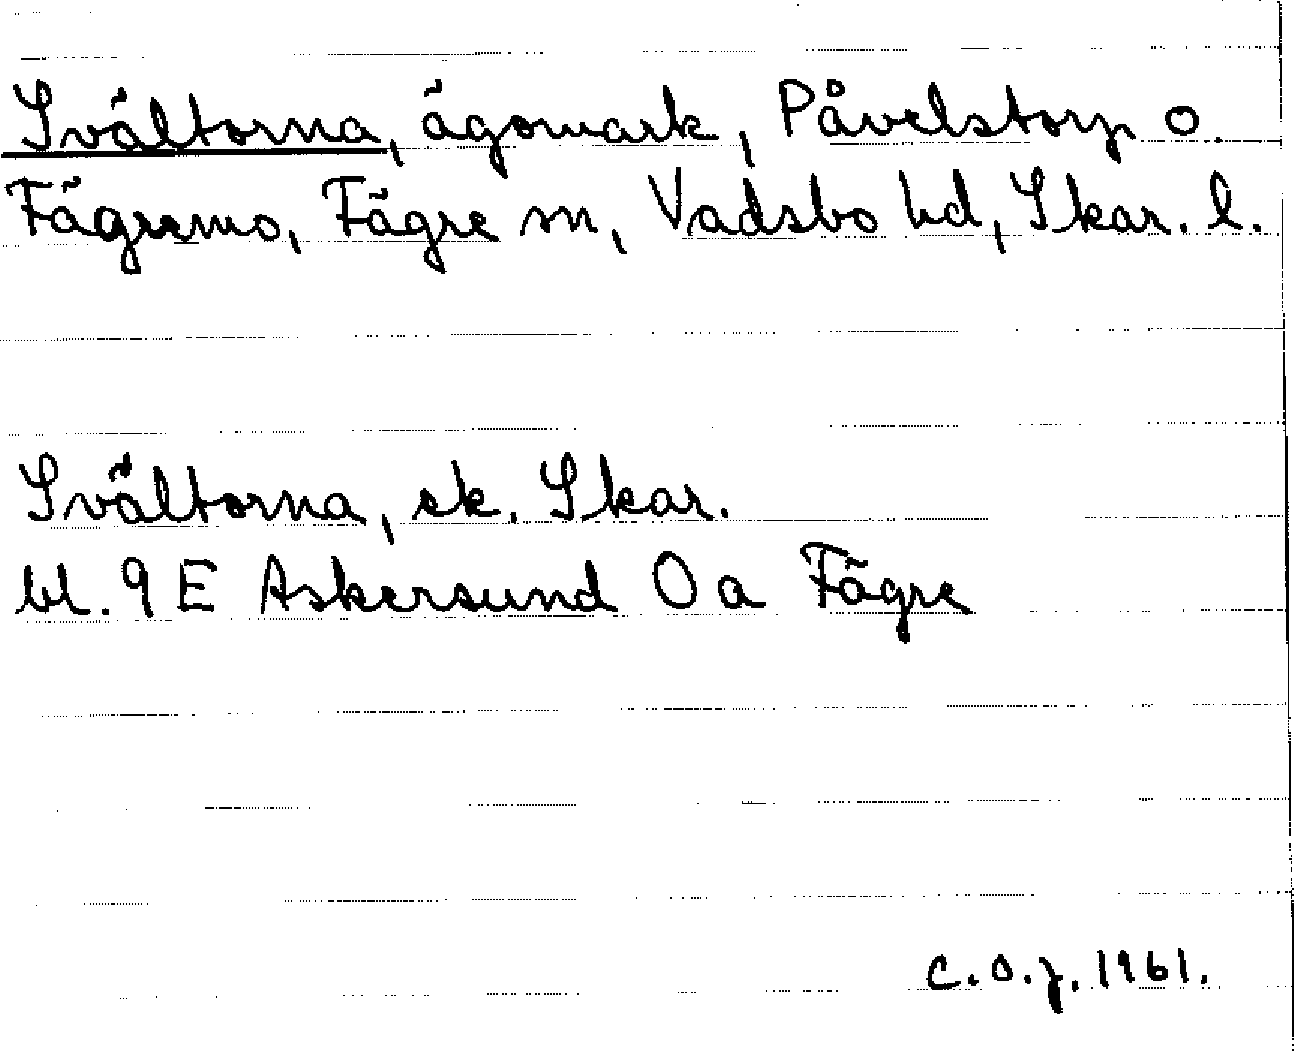 Svältorna, ägomark, Påvelstorp o.
Fägremo, Fägre sn, Vadsbo hd, Skar. l.
Svältorna, ek. Skar.
bl. 9 E Askersund 0 a Fägre
C.O.J. 1961.